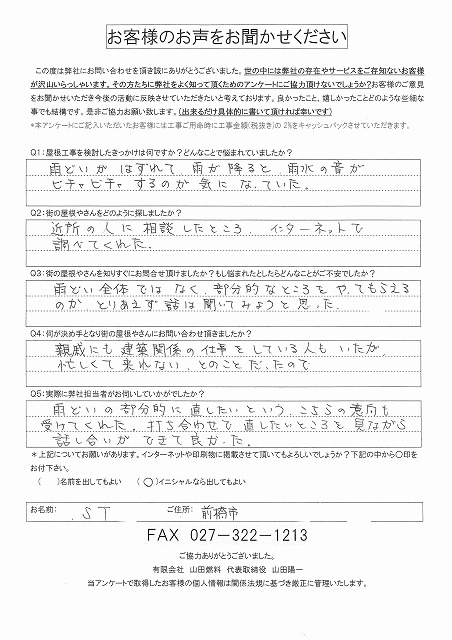 お客様のお声をお聞かせください
この度は弊社にお問い合わせを頂き誠にありがとうございました。世の中には弊社の存在やサービスをご存知ないお客様
が沢山いらっしゃいます。その方たちに弊社をよく知って頂くためのアンケートにご協力頂けないでしょうか?お客様のご意見
をお聞かせいただき今後の活動に反映させていただきたいと考えております。良かったこと、嬉しかったことどのような些細な
事でも結構です。是非ご協力お願い致します。(出来るだけ具体的に書いて頂ければ幸いです)
*本アンケートにご記入いただいたお客様には工事ご用命時に工事金額(税抜き)の 2%をキャッシュバックさせていただきます。
Q1:屋根工事を検討したきっかけは何ですか?どんなことで悩まれていましたか?
雨どいが はずれて、雨が降ると 雨水の音が
ピチャピチャ するのが 気に なっていた。
Q2:街の屋根やさんをどのように探しましたか?
近所の人に 相談 したところ、インターネットで
調べてくれた。
Q3:街の屋根やさんを知りすぐにお問合せ頂けましたか?もし悩まれたとしたらどんなことがご不安でしたか?
雨どい 全体 では なく、部分的なところを やってもらえる
のか とりあえず 話は 聞いてみようと 思った。
Q4:何が決め手となり街の屋根やさんにお問い合わせ頂きましたか?
親戚にも 建築関係の 仕事を している 人も いたが、
忙しくて 来れない、とのこと だったので
Q5:実際に弊社担当者がお伺いしていかがでしたか?
雨どいの 部分的に 直したい という、こちらの意向も
受けてくれた。打ち合わせで 直したいところを 見ながら
話し合いが できて 良かった。
*上記についてお願いがあります。インターネットや印刷物に掲載させて頂いてもよろしいでしょうか?下記の中から○印を
お付下さい。
( )名前を出してもよい (○)イニシャルなら出してもよい
お名前: .ST ご住所: 前橋市
FAX 027-322-1213
ご協力ありがとうございました。
有限会社 山田燃料 代表取締役 山田陽一
当アンケートで取得したお客様の個人情報は関係法規に基づき厳正に管理いたします。